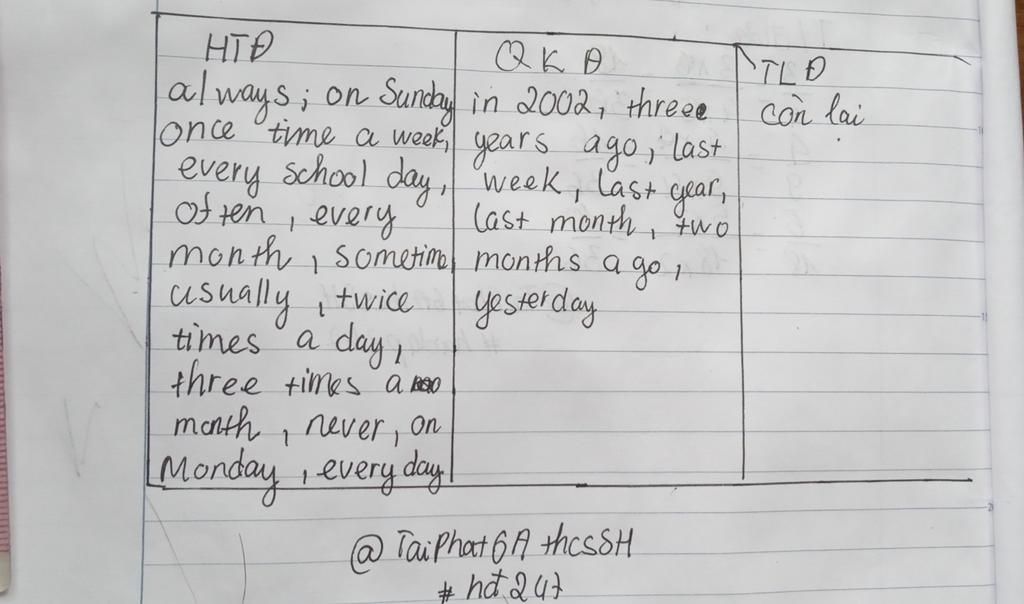 HTĐ
always; on Sunday
once time a week,
every school day,
often, every
month, sometime,
usually, twice
times a day,
three times a
month, never, on
Monday, every day
QKĐ
in 2002, three
years ago, last
week, last year,
last month, two
months ago,
yesterday
TLĐ
còn lại
@TaiPhat6A thcsSH
# hdt 247